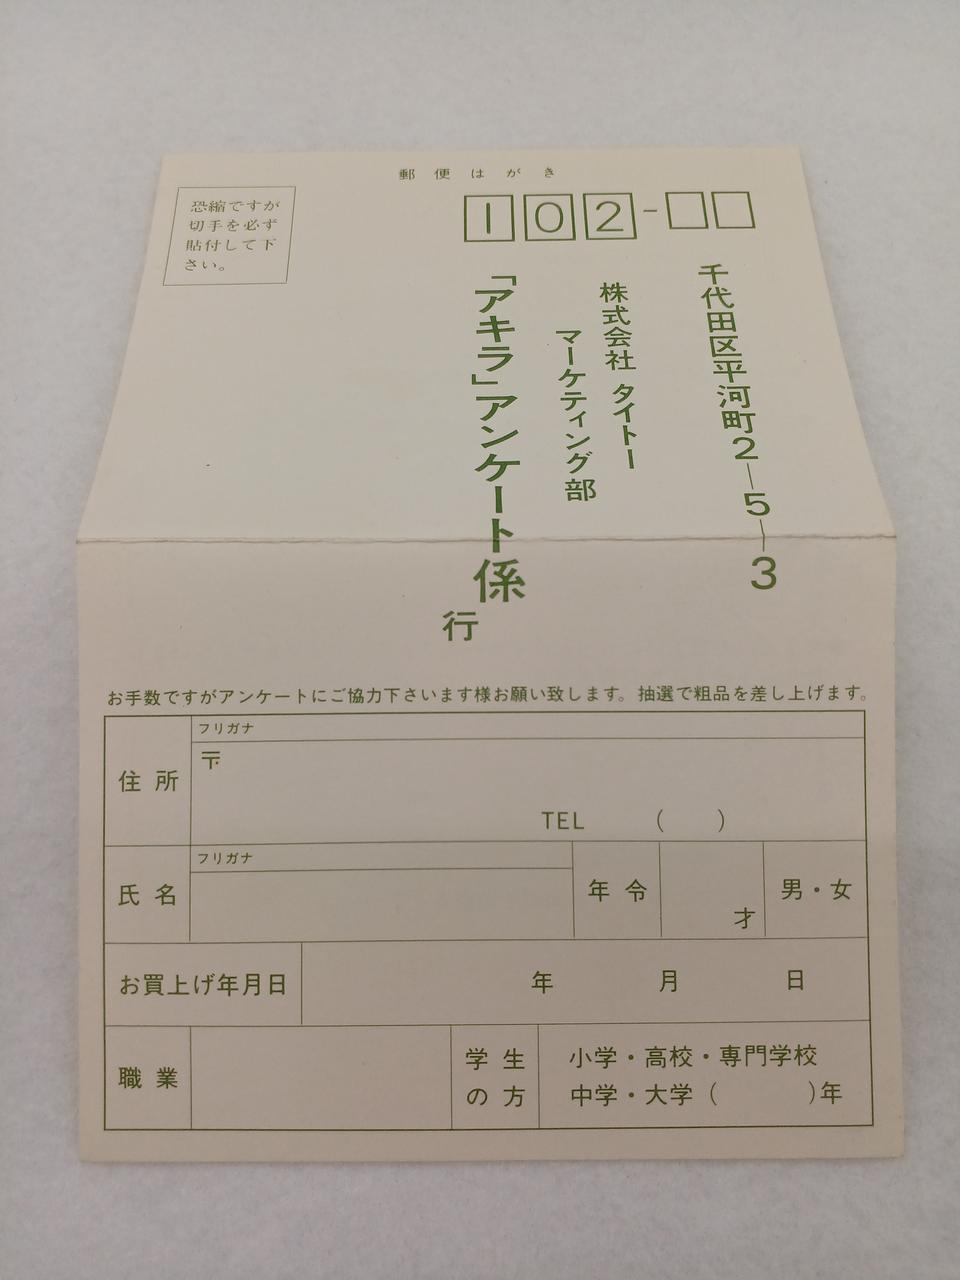 郵便はがき
恐縮ですが
切手を必ず
貼付して下
さい。
102-
千代田区平河町2-5-3
株式会社 タイトー
マーケティング部
「アキラ」アンケート係
行
お手数ですがアンケートにご協力下さいます様お願い致します。抽選で粗品を差し上げます。
住所
フリガナ
〒
TEL ( )
氏名
フリガナ
年令
才
男・女
お買上げ年月日
年 月 日
職業
学生
の方
小学・高校・専門学校
中学・大学 ( )年